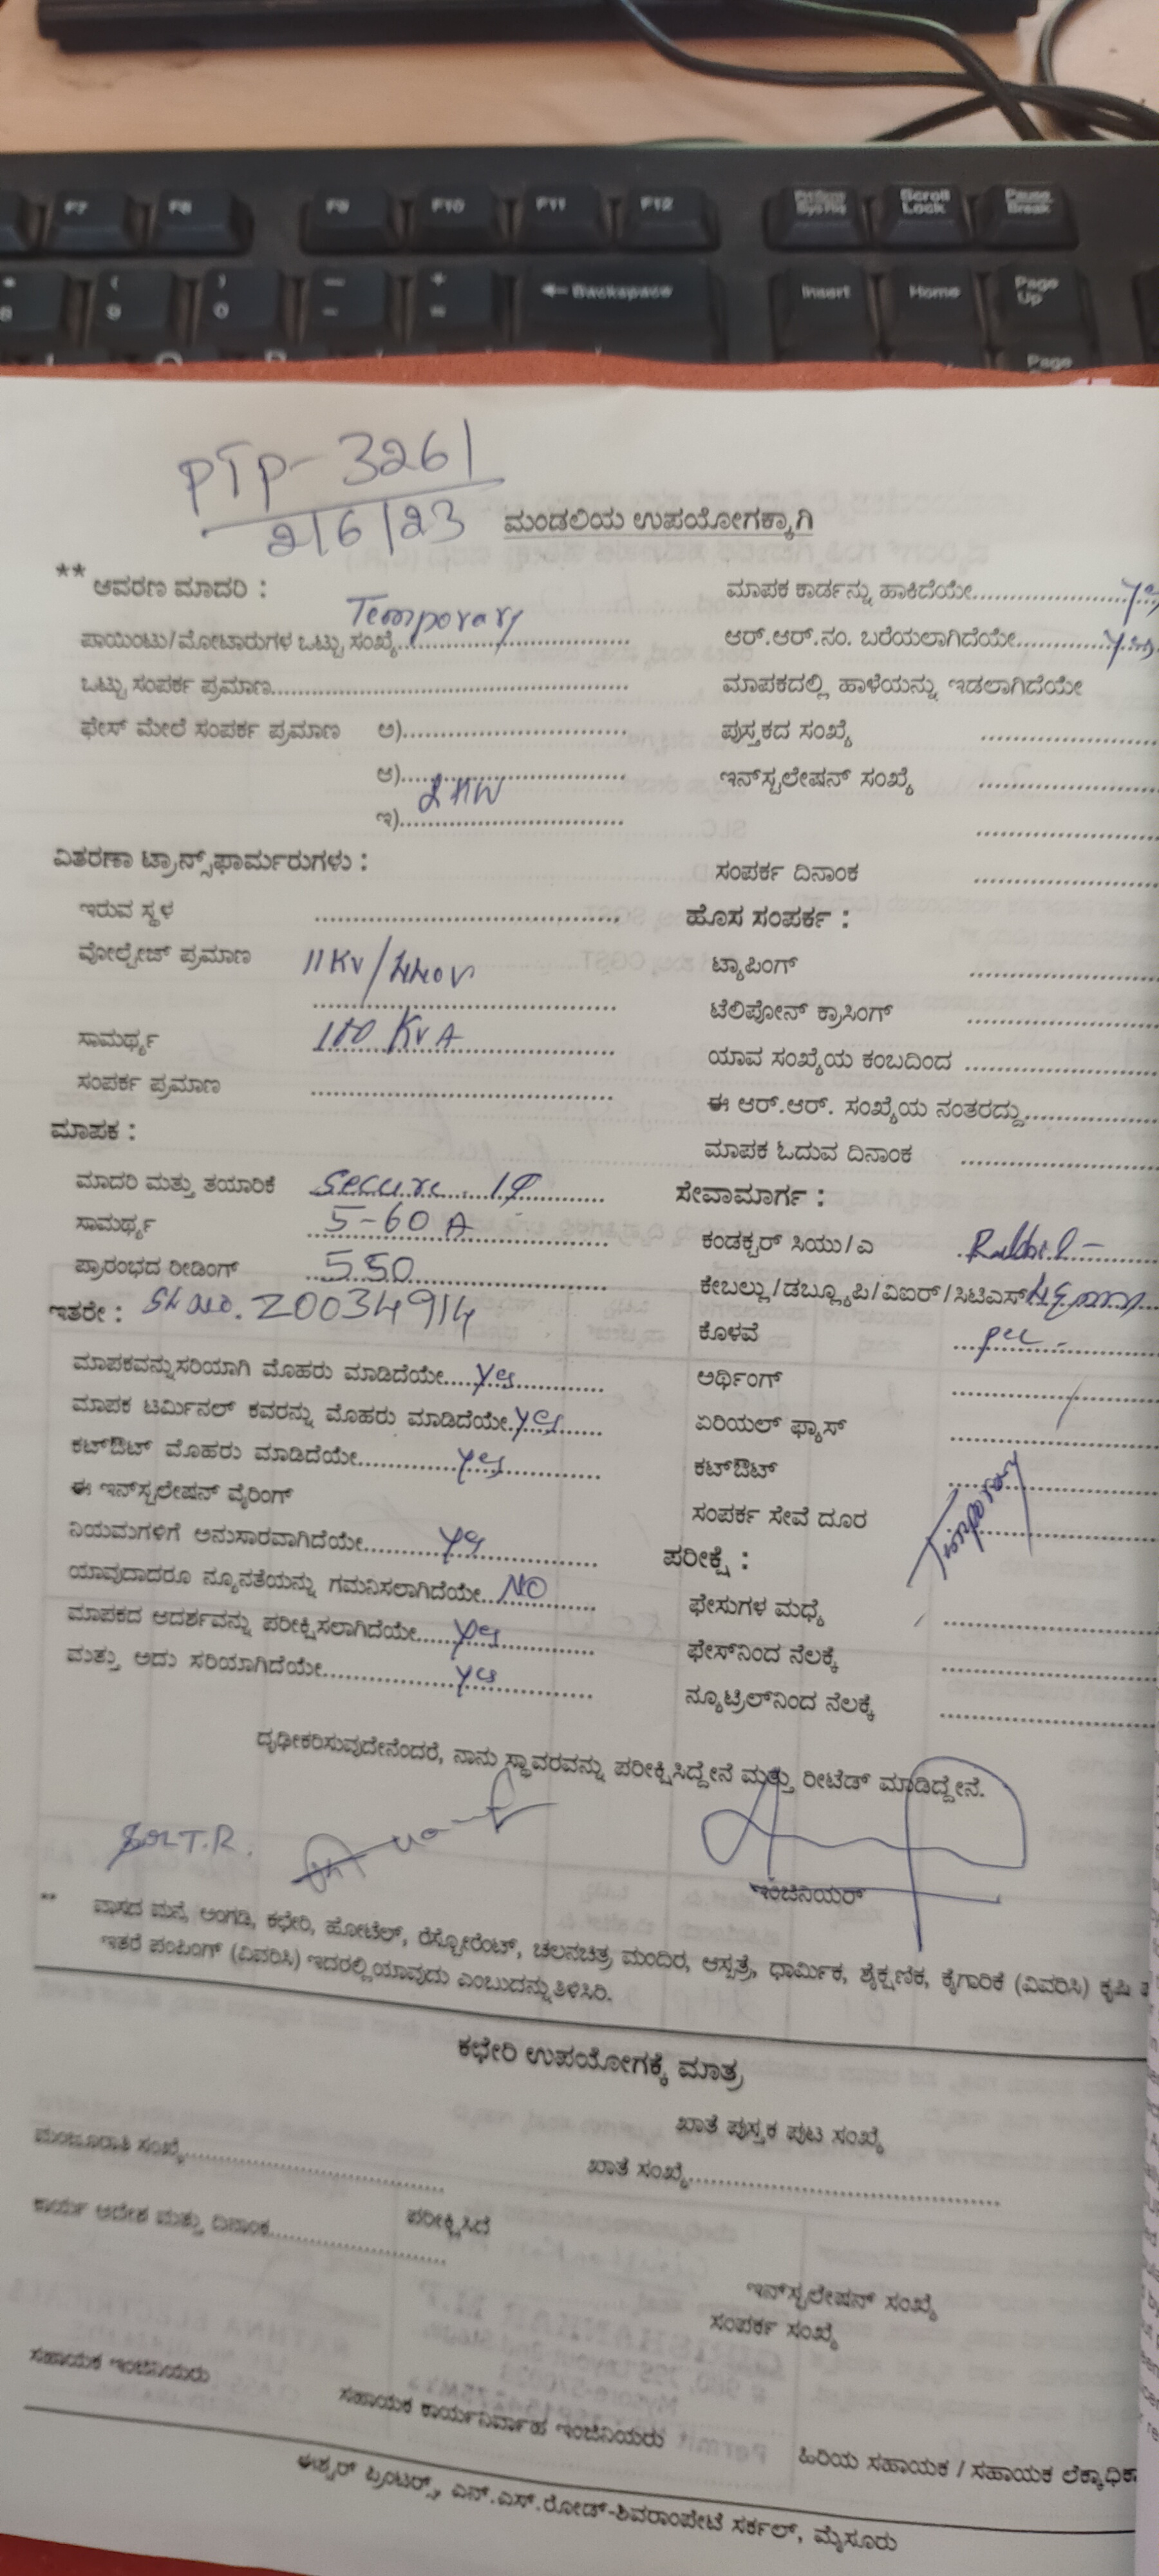 F7 F8 F9 F10 F11 F12 Scroll Lock Pause Break
8 ( 9 ) 0 — - + = Backspace Insert Home Page Up
Page
PTP-3261
2/6/23
ಮಂಡಲಿಯ ಉಪಯೋಗಕ್ಕಾಗಿ
** ಆವರಣ ಮಾದರಿ :
Temporary
ಪಾಯಿಂಟು/ಮೋಟಾರುಗಳ ಒಟ್ಟು ಸಂಖ್ಯೆ
ಒಟ್ಟು ಸಂಪರ್ಕ ಪ್ರಮಾಣ
ಫೇಸ್ ಮೇಲೆ ಸಂಪರ್ಕ ಪ್ರಮಾಣ ಅ)
ಆ)
ಇ) 2 KW
ವಿತರಣಾ ಟ್ರಾನ್ಸ್‌ಫಾರ್ಮರುಗಳು :
ಇರುವ ಸ್ಥಳ
ವೋಲ್ಟೇಜ್ ಪ್ರಮಾಣ 11Kv/440v
ಸಾಮರ್ಥ್ಯ 100 KvA
ಸಂಪರ್ಕ ಪ್ರಮಾಣ
ಮಾಪಕ :
ಮಾದರಿ ಮತ್ತು ತಯಾರಿಕೆ Secure
ಸಾಮರ್ಥ್ಯ 5-60 A
ಪ್ರಾರಂಭದ ರೀಡಿಂಗ್ 550
ಇತರೇ : Sl no. 20034914
ಮಾಪಕವನ್ನು ಸರಿಯಾಗಿ ಮೊಹರು ಮಾಡಿದೆಯೇ yes
ಮಾಪಕ ಟರ್ಮಿನಲ್ ಕವರನ್ನು ಮೊಹರು ಮಾಡಿದೆಯೇ yes
ಕಟ್‌ಔಟ್ ಮೊಹರು ಮಾಡಿದೆಯೇ yes
ಈ ಇನ್‌ಸ್ಟಲೇಷನ್ ವೈರಿಂಗ್
ನಿಯಮಗಳಿಗೆ ಅನುಸಾರವಾಗಿದೆಯೇ yes
ಯಾವುದಾದರೂ ನ್ಯೂನತೆಯನ್ನು ಗಮನಿಸಲಾಗಿದೆಯೇ NO
ಮಾಪಕದ ಆದರ್ಶವನ್ನು ಪರೀಕ್ಷಿಸಲಾಗಿದೆಯೇ yes
ಮತ್ತು ಅದು ಸರಿಯಾಗಿದೆಯೇ yes
ಮಾಪಕ ಕಾರ್ಡನ್ನು ಹಾಕಿದೆಯೇ yes
ಆರ್.ಆರ್.ನಂ. ಬರೆಯಲಾಗಿದೆಯೇ yes
ಮಾಪಕದಲ್ಲಿ ಹಾಳೆಯನ್ನು ಇಡಲಾಗಿದೆಯೇ
ಪುಸ್ತಕದ ಸಂಖ್ಯೆ
ಇನ್‌ಸ್ಟಲೇಷನ್ ಸಂಖ್ಯೆ
ಸಂಪರ್ಕ ದಿನಾಂಕ
ಹೊಸ ಸಂಪರ್ಕ :
ಟ್ಯಾಪಿಂಗ್
ಟೆಲಿಪೋನ್ ಕ್ರಾಸಿಂಗ್
ಯಾವ ಸಂಖ್ಯೆಯ ಕಂಬದಿಂದ
ಈ ಆರ್.ಆರ್. ಸಂಖ್ಯೆಯ ನಂತರದ್ದು
ಮಾಪಕ ಓದುವ ದಿನಾಂಕ
ಸೇವಾಮಾರ್ಗ :
ಕಂಡಕ್ಟರ್ ಸಿಯು/ಎ
ಕೇಬಲ್ಲು/ಡಬ್ಲ್ಯೂಪಿ/ವಿಐರ್/ಸಿಟಿಎಸ್
ಕೊಳವೆ
ಅರ್ಥಿಂಗ್
ಏರಿಯಲ್ ಫ್ಯೂಸ್
ಕಟ್‌ಔಟ್
ಸಂಪರ್ಕ ಸೇವೆ ದೂರ
Temporary
ಪರೀಕ್ಷೆ :
ಫೇಸುಗಳ ಮಧ್ಯೆ
ಫೇಸ್‌ನಿಂದ ನೆಲಕ್ಕೆ
ನ್ಯೂಟ್ರಲ್‌ನಿಂದ ನೆಲಕ್ಕೆ
ದೃಢೀಕರಿಸುವುದೇನೆಂದರೆ, ನಾನು ಸ್ಥಾವರವನ್ನು ಪರೀಕ್ಷಿಸಿದ್ದೇನೆ ಮತ್ತು ರೀಟೆಡ್ ಮಾಡಿದ್ದೇನೆ.
ಇಂಜಿನಿಯರ್
** ವಾಸದ ಮನೆ, ಅಂಗಡಿ, ಕಛೇರಿ, ಹೋಟೆಲ್, ರೆಸ್ಟೋರೆಂಟ್, ಚಲನಚಿತ್ರ ಮಂದಿರ, ಆಸ್ಪತ್ರೆ, ಧಾರ್ಮಿಕ, ಶೈಕ್ಷಣಿಕ, ಕೈಗಾರಿಕೆ (ವಿವರಿಸಿ) ಕೃಷಿ
ಇತರೆ ಪಂಪಿಂಗ್ (ವಿವರಿಸಿ) ಇದರಲ್ಲಿ ಯಾವುದು ಎಂಬುದನ್ನು ತಿಳಿಸಿರಿ.
ಕಛೇರಿ ಉಪಯೋಗಕ್ಕೆ ಮಾತ್ರ
ಖಾತೆ ಪುಸ್ತಕ ಪುಟ ಸಂಖ್ಯೆ
ಮಂಜೂರಾತಿ ಸಂಖ್ಯೆ ಖಾತೆ ಸಂಖ್ಯೆ
ಕಾರ್ಯ ಆದೇಶ ಮತ್ತು ದಿನಾಂಕ ಪರೀಕ್ಷಿಸಿದೆ
ಇನ್‌ಸ್ಟಲೇಷನ್ ಸಂಖ್ಯೆ
ಸಂಪರ್ಕ ಸಂಖ್ಯೆ
ಸಹಾಯಕ ಇಂಜಿನಿಯರು ಸಹಾಯಕ ಕಾರ್ಯನಿರ್ವಾಹ ಇಂಜಿನಿಯರು ಹಿರಿಯ ಸಹಾಯಕ / ಸಹಾಯಕ ಲೆಕ್ಕಾಧಿಕಾ
ಈಶ್ವರ್ ಪ್ರಿಂಟರ್ಸ್, ಎನ್.ಎಸ್.ರೋಡ್-ಶಿವರಾಂಪೇಟೆ ಸರ್ಕಲ್, ಮೈಸೂರು